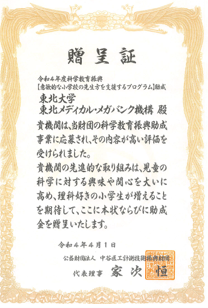 贈呈証
令和4年度科学教育振興
【意欲的な小学校の先生方を支援するプログラム】助成
東北大学
東北メディカル・メガバンク機構 殿
貴機関は、当財団の科学教育振興助成
事業に応募され、その内容が高い評価を
受けられました。
貴機関の先進的な取り組みは、児童の
科学に対する興味や関心を大いに
高め、理科好きの小学生が増えること
を期待して、ここに本状ならびに助成
金を贈呈いたします。
令和4年4月1日
公益財団法人 中谷医工計測技術振興財団
代表理事 家次 恒